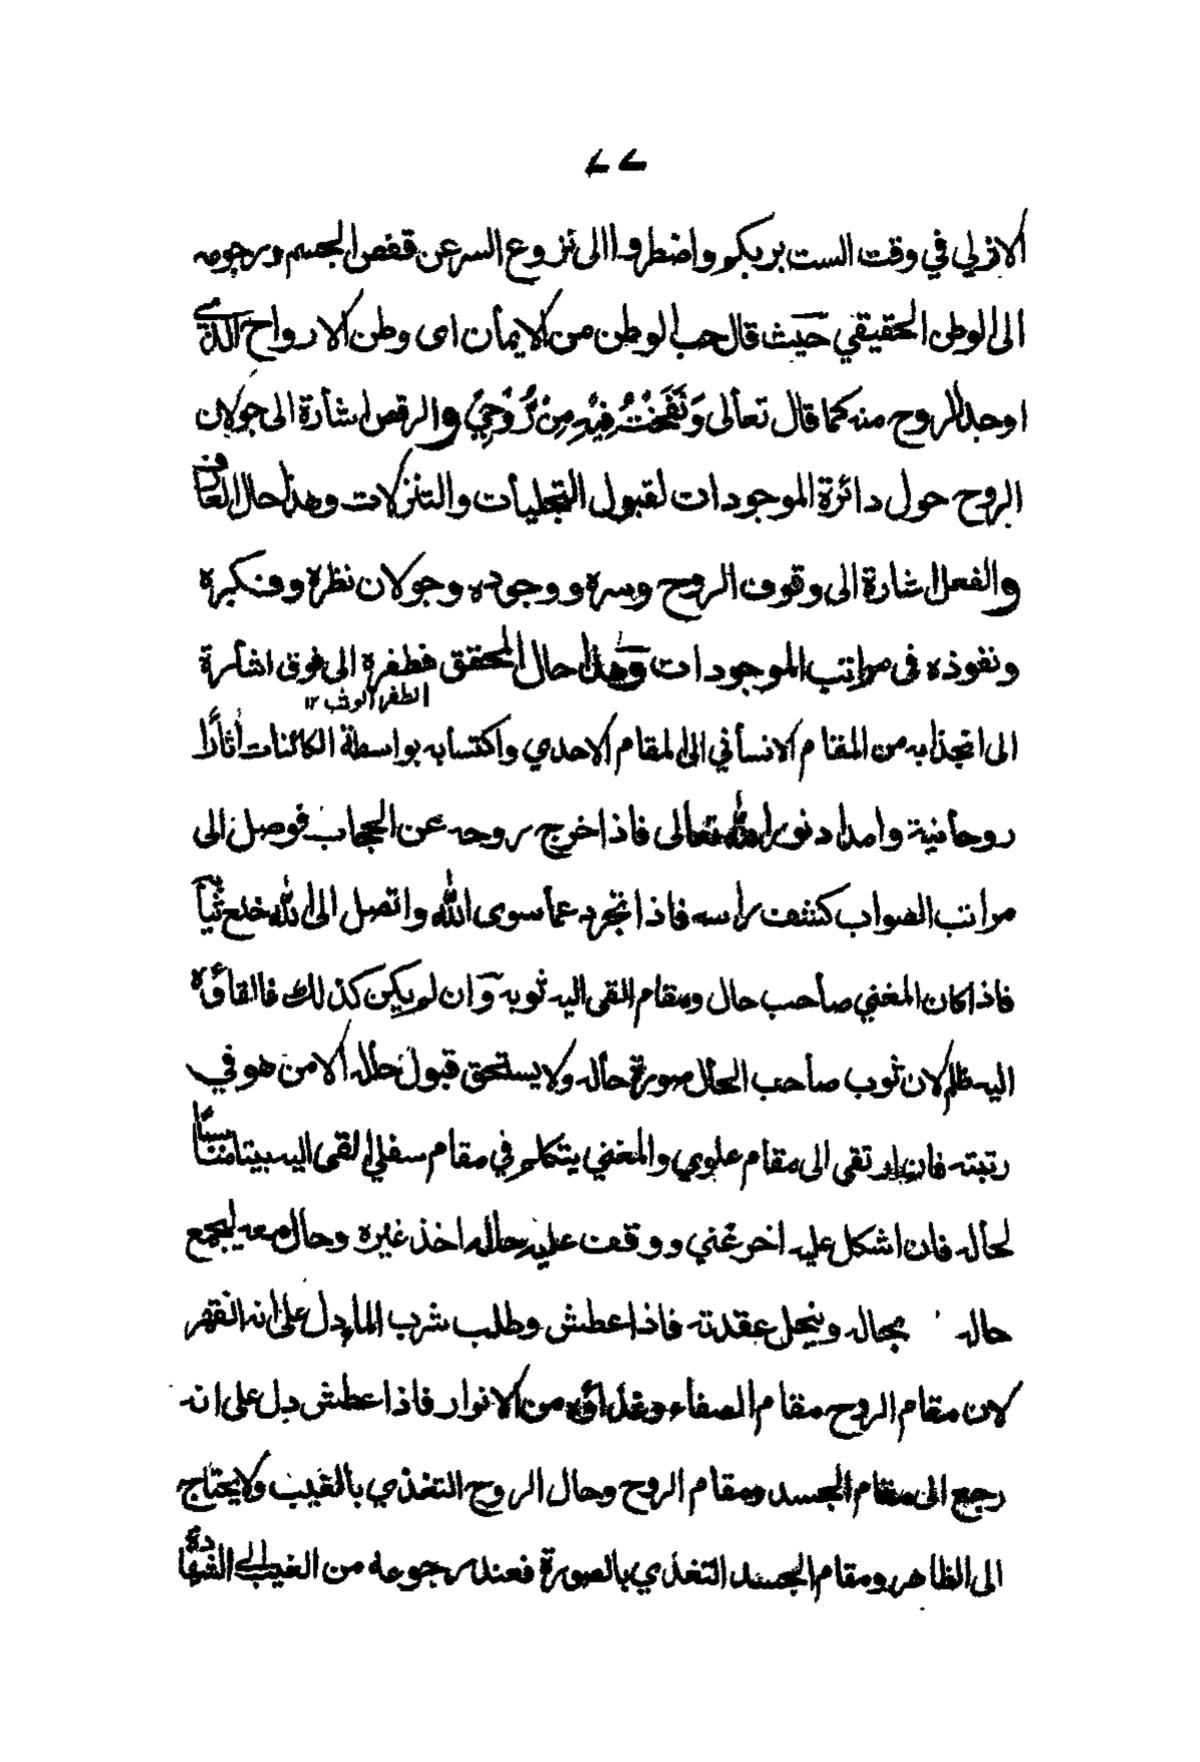 ٢٢
الازلي في وقت الست بربكم واضطروا الى نزوع السر عن قفص الجسم ورجوعه
الى الوطن الحقيقي حيث قال حب الوطن من الايمان اى وطن الارواح الذي
اوجد الروح منه كما قال تعالى وَنَفَخْتُ فِيْهِ مِنْ رُّوْحِيْ والرقص اشارة الى جولان
الروح حول دائرة الموجودات لقبول التجليات والتنزلات وهذا حال العارف
والفعل اشارة الى وقوف الروح وسره ووجوده وجولان نظره وفكره
ونفوذه فى مراتب الموجودات وهذا حال المحقق فطفره الى فوق اشارة
الطفر الوثب ١٢
الى انجذابه من المقام الانساني الى المقام الاحدي واكتسابه بواسطة الكائنات أثارًا
روحانية وامداد نور الله تعالى فاذا خرج روحه عن الحجاب فوصل الى
مراتب الصواب كشف راسه فاذا تجرد عما سوى الله واتصل الى الله خلع ثيابه
فاذا كان المغني صاحب حال ومقام القى اليه ثوبه وان لم يكن كذلك فالقاؤه
اليه ظلم لان ثوب صاحب الحال صورة حاله ولا يستحق قبول حاله الا من هو في
رتبته فان ارتقى الى مقام علوي والمغني يتكلم في مقام سفلي القى اليه بيتا مناسبًا
لحاله فان اشكل عليه اخر غني ووقفت عليه حاله اخذ غيره وحال معه ليجمع
حاله بحاله وينحل عقدته فاذا عطش وطلب شرب الماء دل على انه انقهر
لان مقام الروح مقام الصفاء وغذاؤه من الانوار فاذا عطش دل على انه
رجع الى مقام الجسد ومقام الروح وحال الروح التغذي بالغيب ولا يحتاج
الى الظاهر ومقام الجسد التغذي بالصورة فعند رجوعه من الغيب الى الشهادة